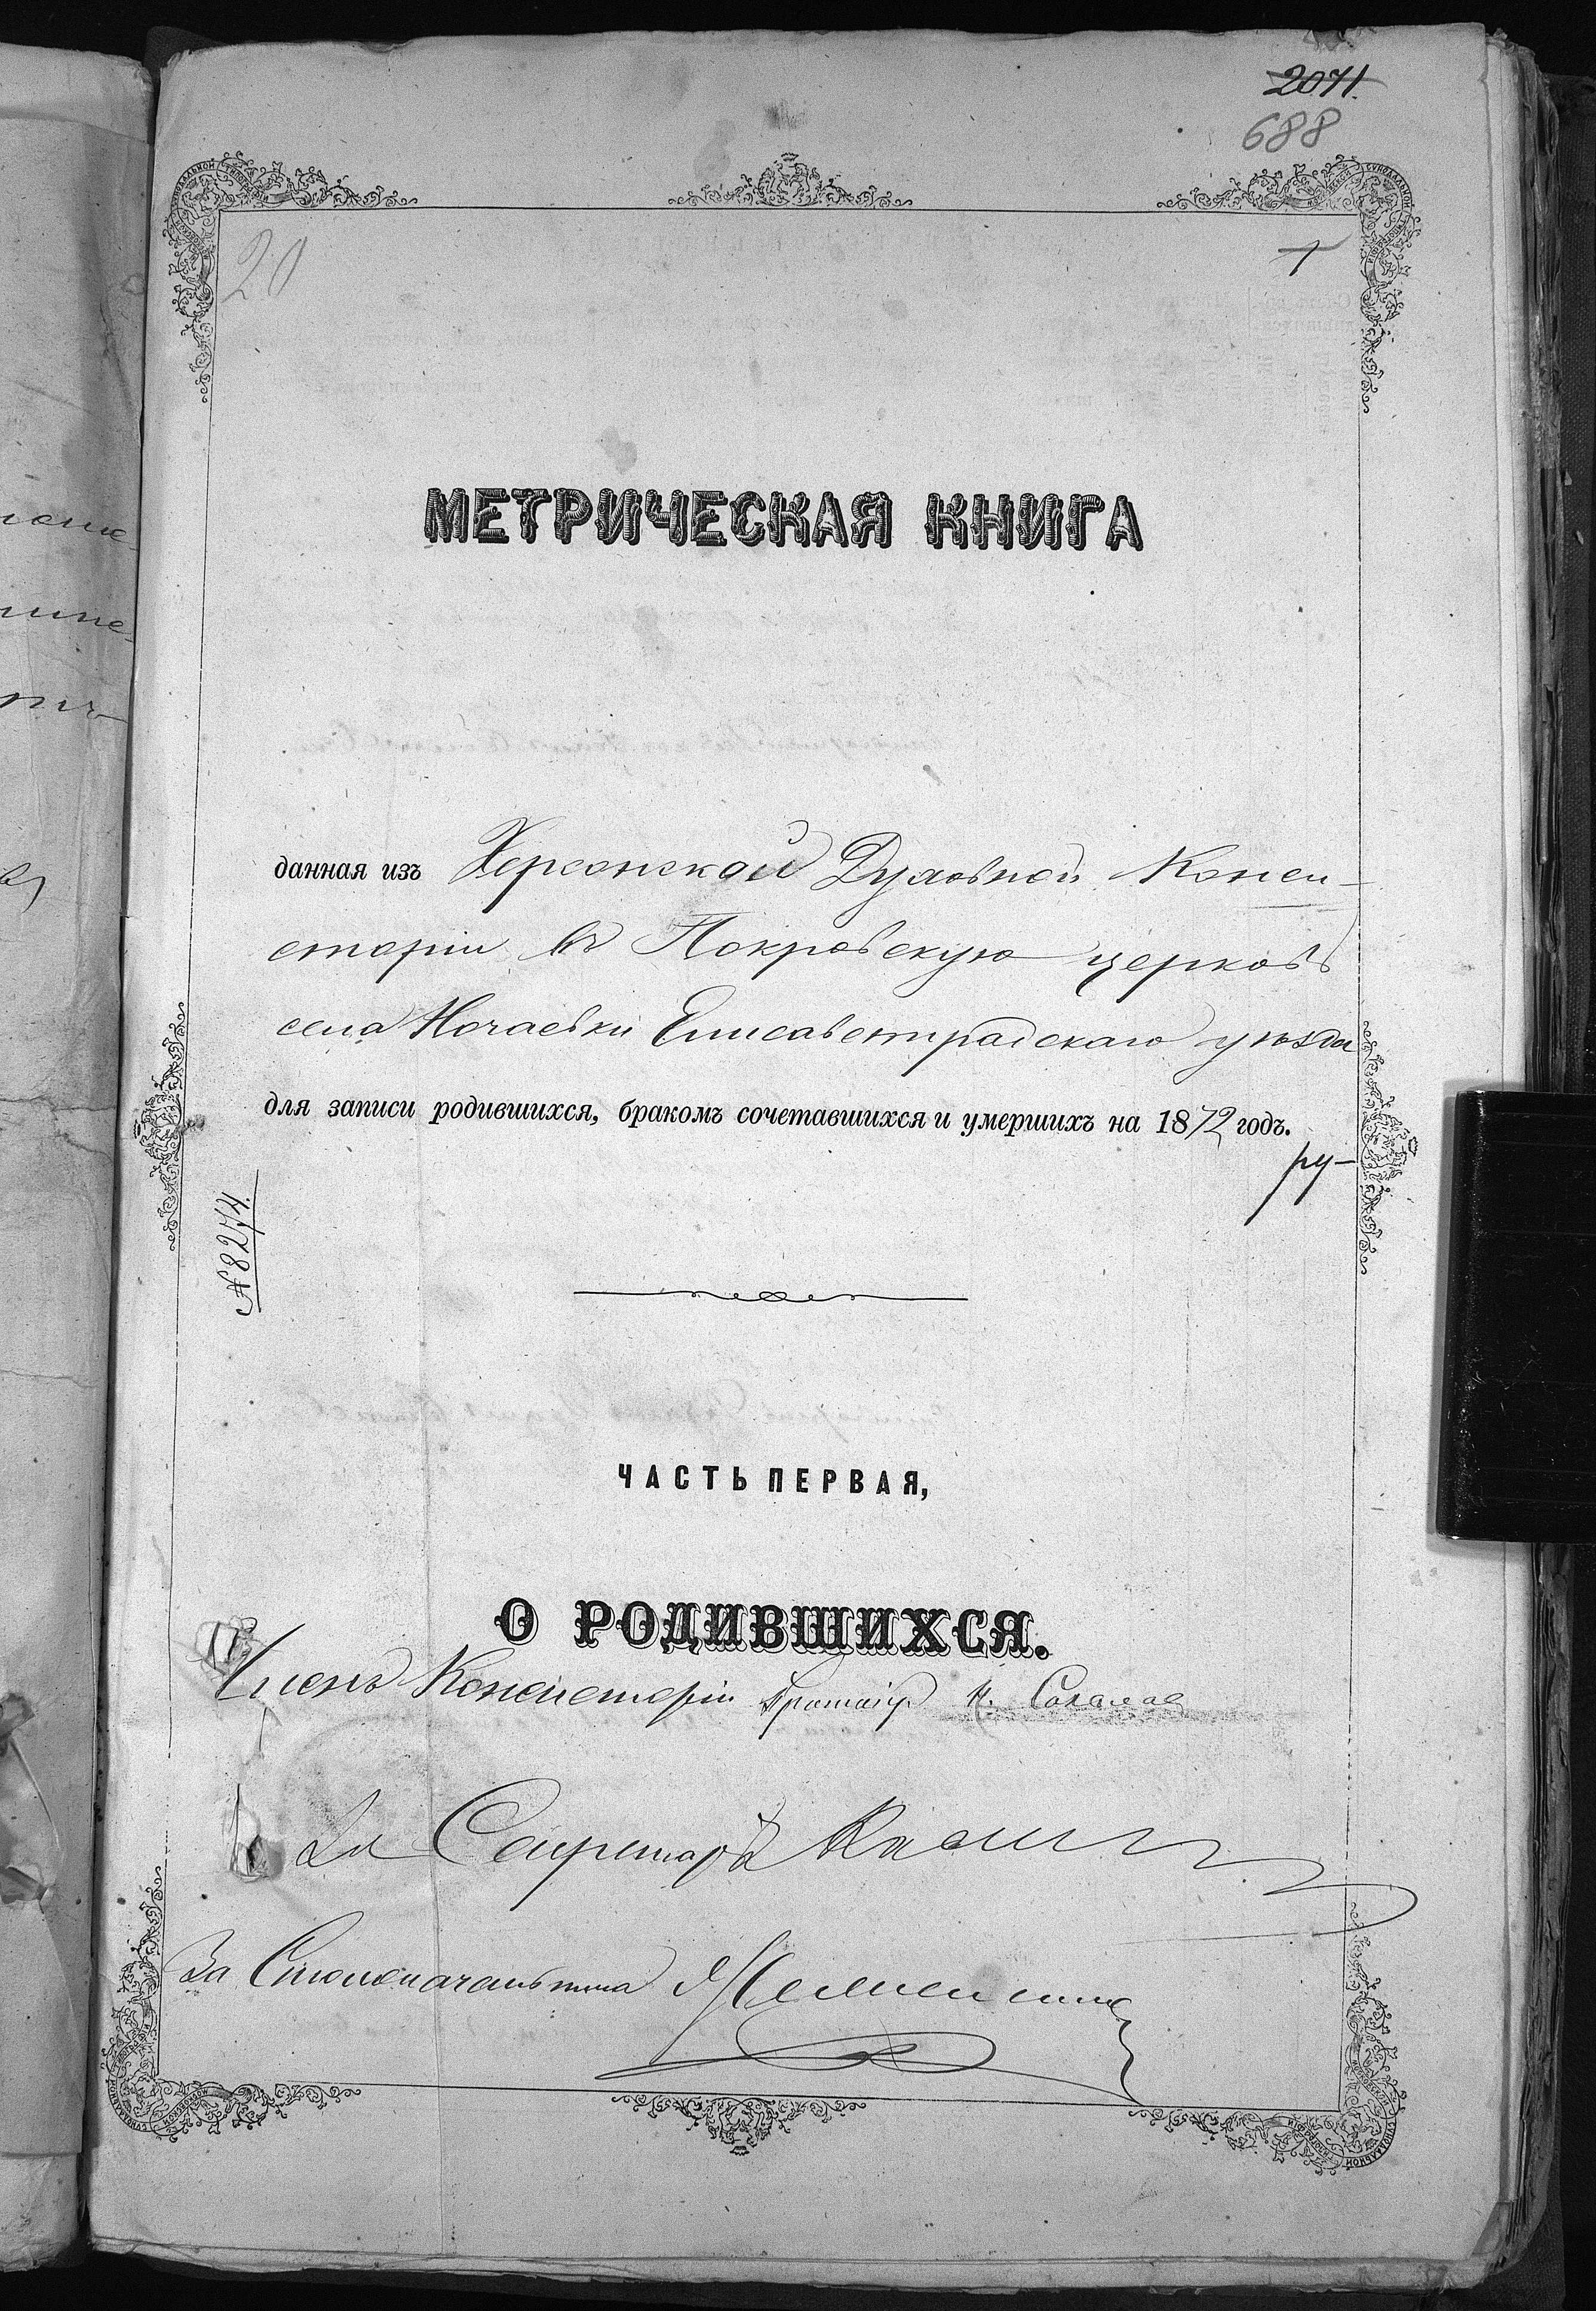 2071.
688
20
1
МЕТРИЧЕСКАЯ КНИГА
данная изъ Херсонской Духовной Конси-
сторіи въ Покровскую церковь
села Нечаевки Елисаветградскаго уѣзда
для записи родившихся, бракомъ сочетавшихся и умершихъ на 1872 годъ.
ру-
№ 8274.
ЧАСТЬ ПЕРВАЯ,
О РОДИВШИХСЯ.
Членъ Консисторіи Протоіер
За Секретаря
За Столоначальника